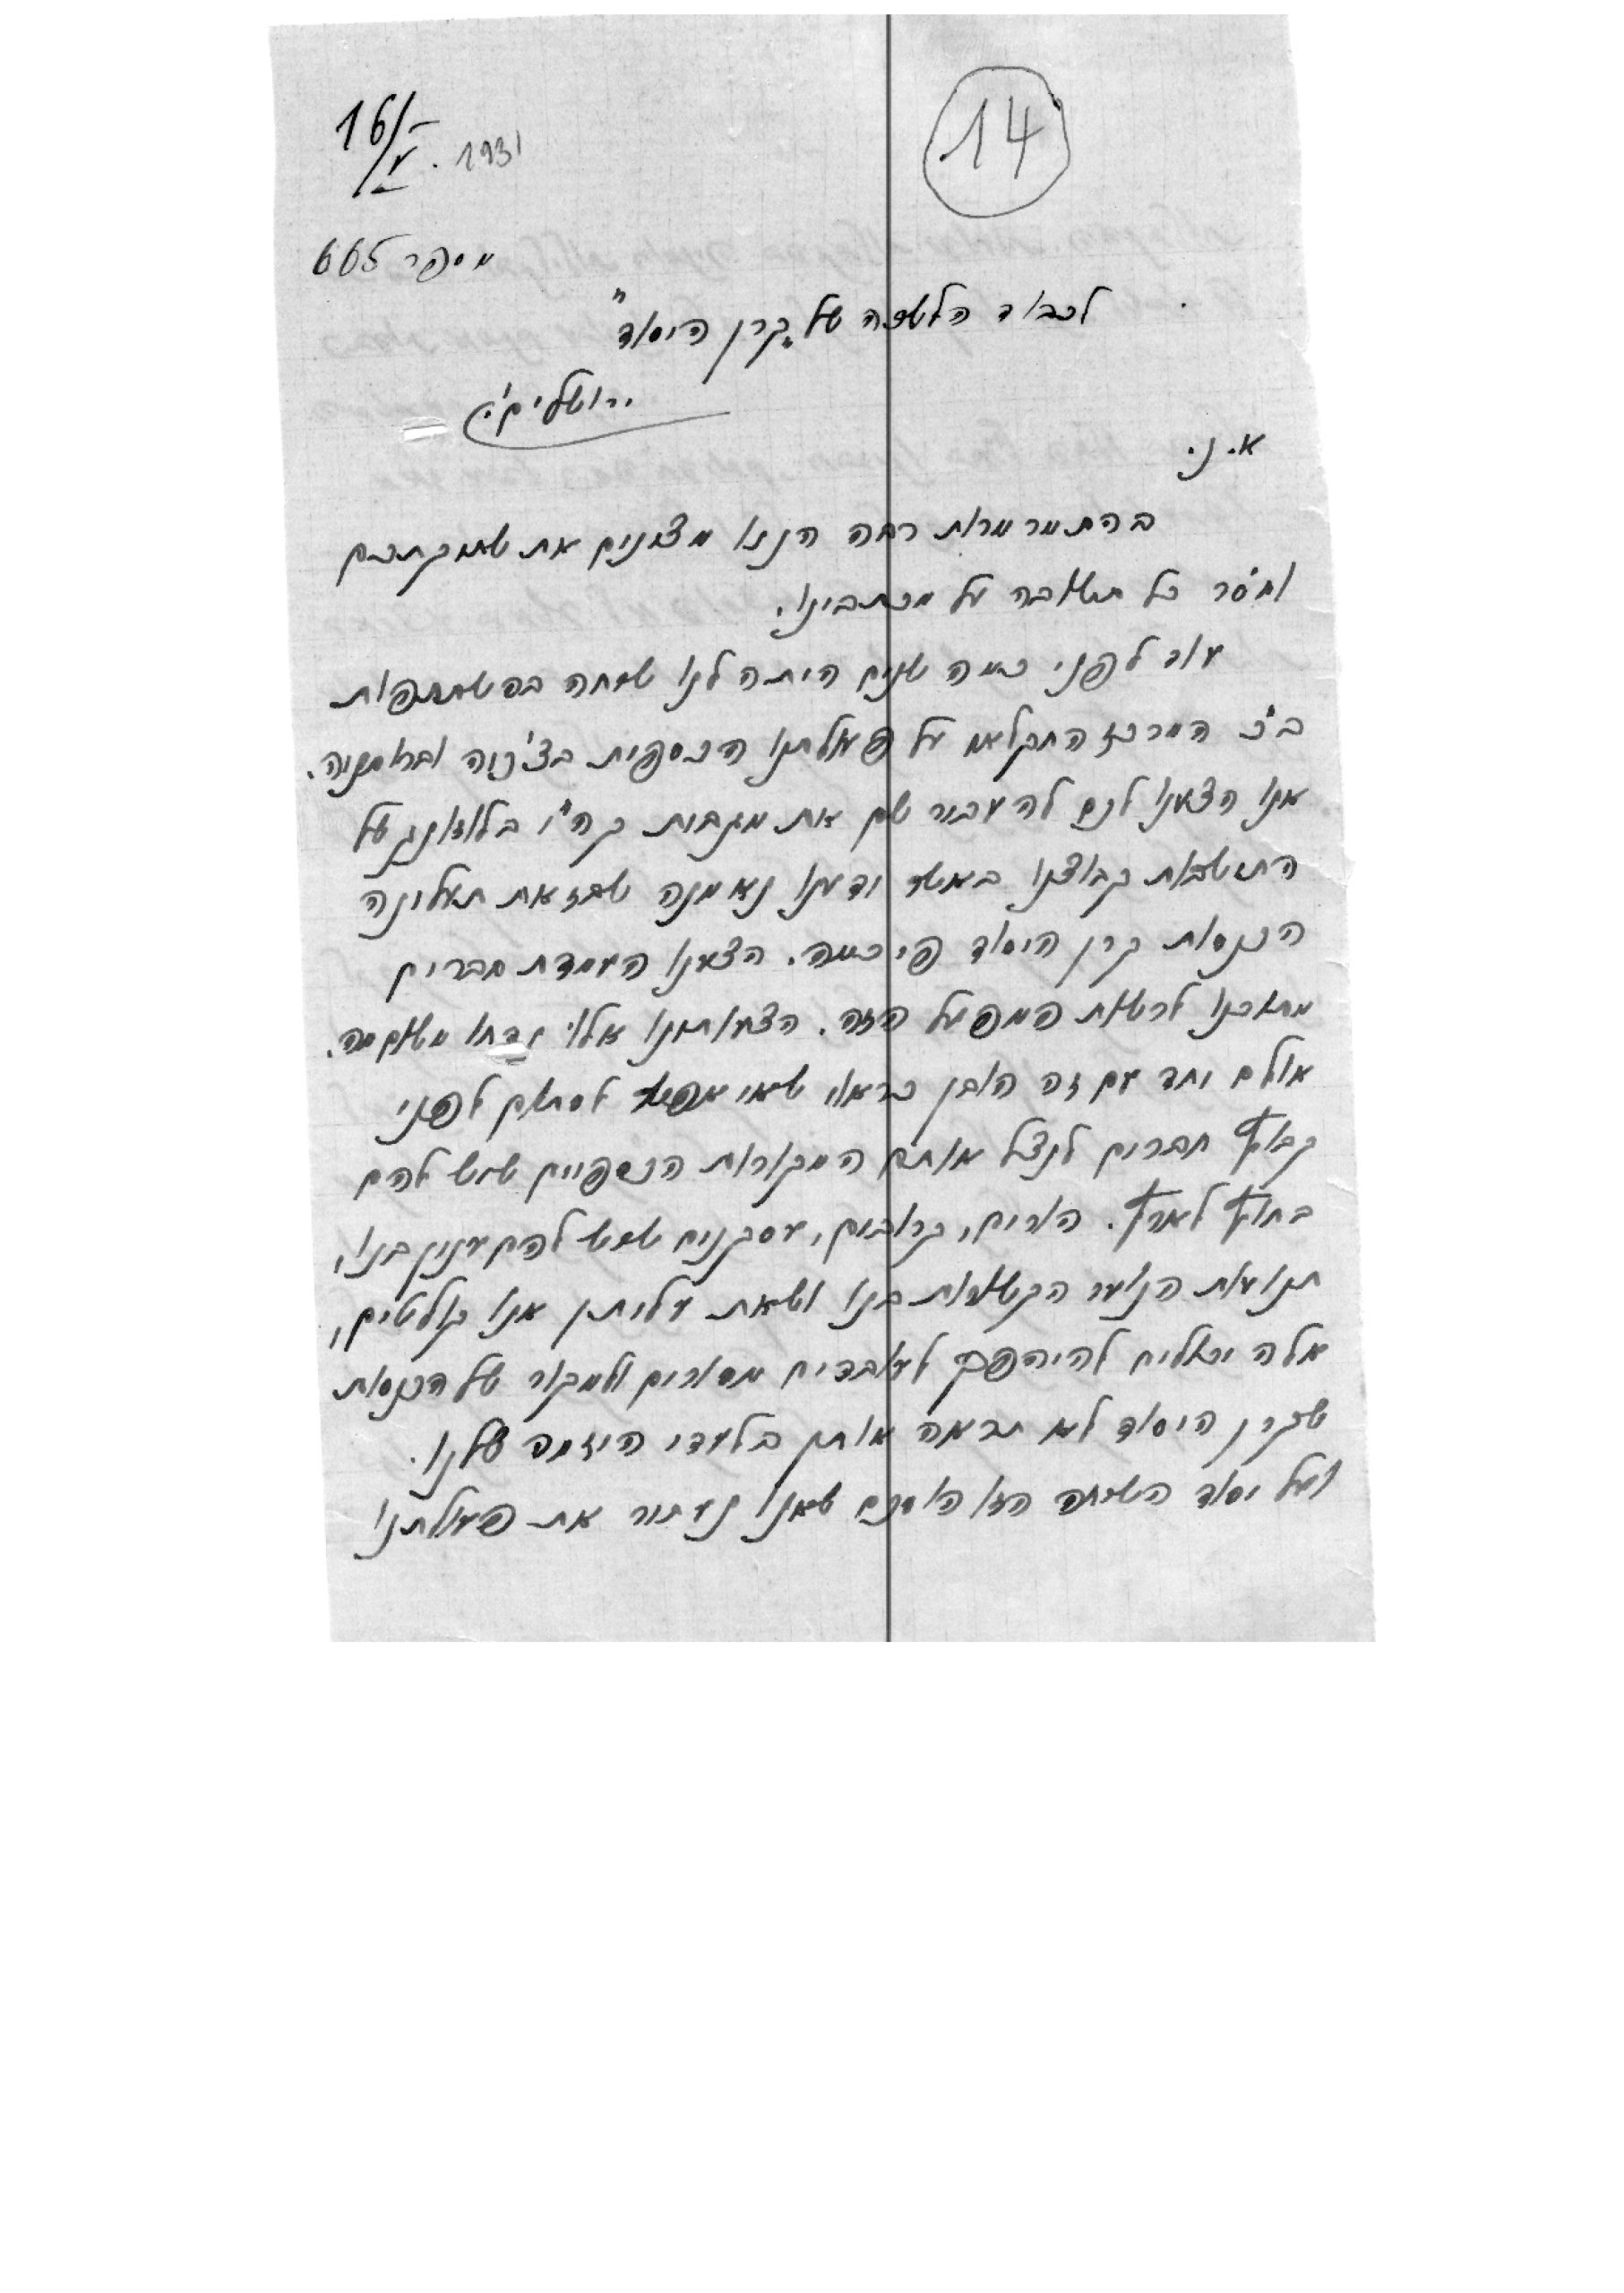 14
16/V. 1931
מספר 665
לכבוד הלשכה של "קרן היסוד"
ירושלים.
א. נ.
בהתמרמרות רבה הננו מציינים את שתיקתכם
וחסר כל תשובה על מכתבינו.
עוד לפני כמה שנים היתה לנו שיחה בהשתתפות
ב"כ המרכז החקלאי על פעולתנו הכספית בצ'כיה וברומניה.
אנו הצענו לכם להעביר שם את מגבית קה"י בלוזונג של
התישבות קבוצנו באשר ידענו נאמנה שבזאת תעלינה
הכנסות קרן היסוד פי כמה. הצענו העמדת חברים
מתוכנו לרשות המפעל הזה. הצעותינו אלו נדחו
אולם יחד עם זה הובן כראוי שאי אפשר לסתום לפני
קבוץ חברים לנצל אותם המקורות הכספיים שיש להם
בחוץ לארץ. הורים, קרובים, עסקנים שיש להם ענין בנו,
תנועות הנוער הקשורות בנו ושאת עליתן אנו קולטים,
אלה יכולים להיהפך לעובדים מסורים ולמקור של הכנסות
שקרן היסוד לא תראה אותן בלעדי היזמה שלנו.
ועל יסוד השיחה הזו הוסכם שאנו את פעולתנו